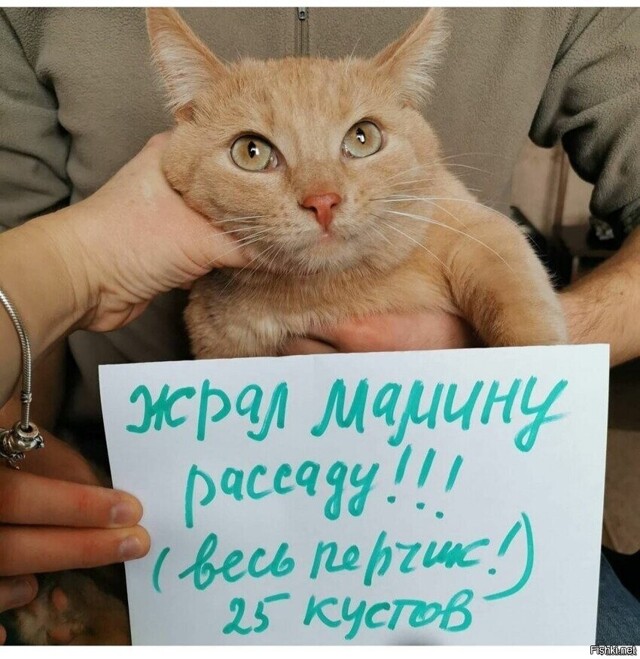 жрал мамину
рассаду!!!
(весь перчик!)
25 кустов
Fishki.net